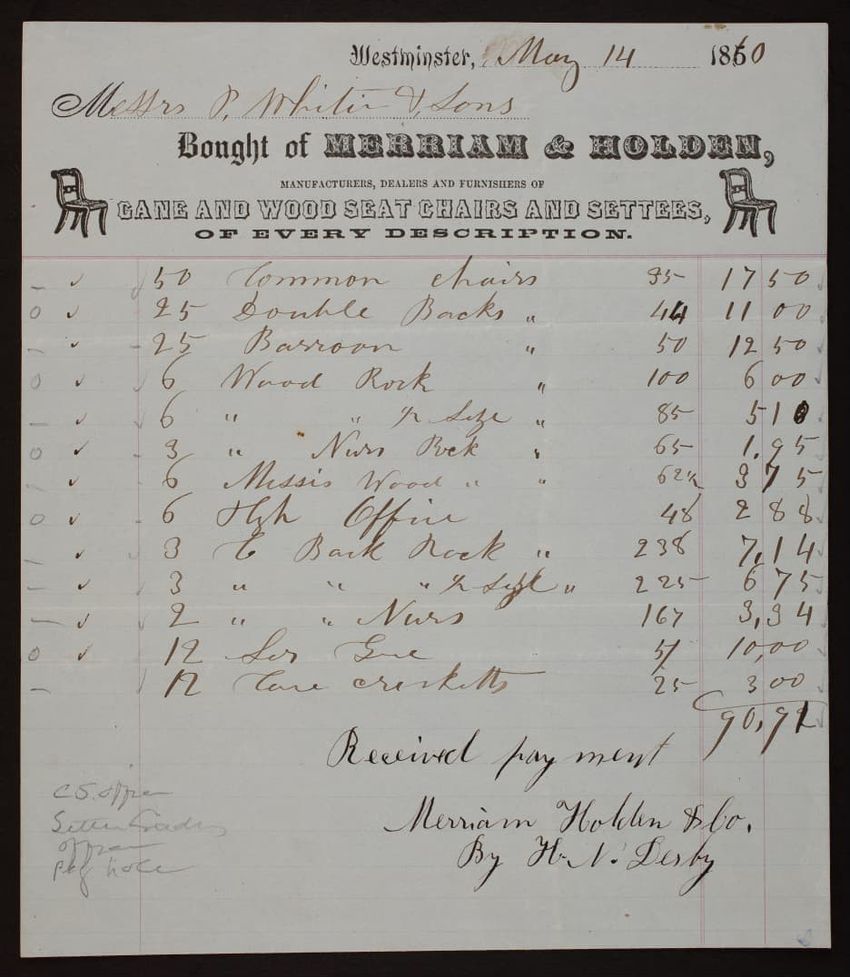 Westminster, May 14 1860
Messrs P. Whitin & Sons
Bought of MERRIAM & HOLDEN,
MANUFACTURERS, DEALERS AND FURNISHERS OF
CANE AND WOOD SEAT CHAIRS AND SETTEES,
OF EVERY DESCRIPTION.
50 Common chairs 35 17 50
25 Double Backs " 44 11 00
25 Barroon " 50 12 50
6 Wood Rock " 100 6 00
6 " " Size " 85 5 10
3 " Nurs Rock " 65 1.95
6 Missis Wood " " 62½ 3 75
6 Hgh Office 48 2 88
3 C Back Rock " 238 7,14
3 " " " Size " 225 6 75
2 " " Nurs 167 3,34
12 10,00
12 Cane cricketts 25 3 00
90,91
Received payment
Merriam Holden & Co.
By H. N. Derby
C S. office
hole